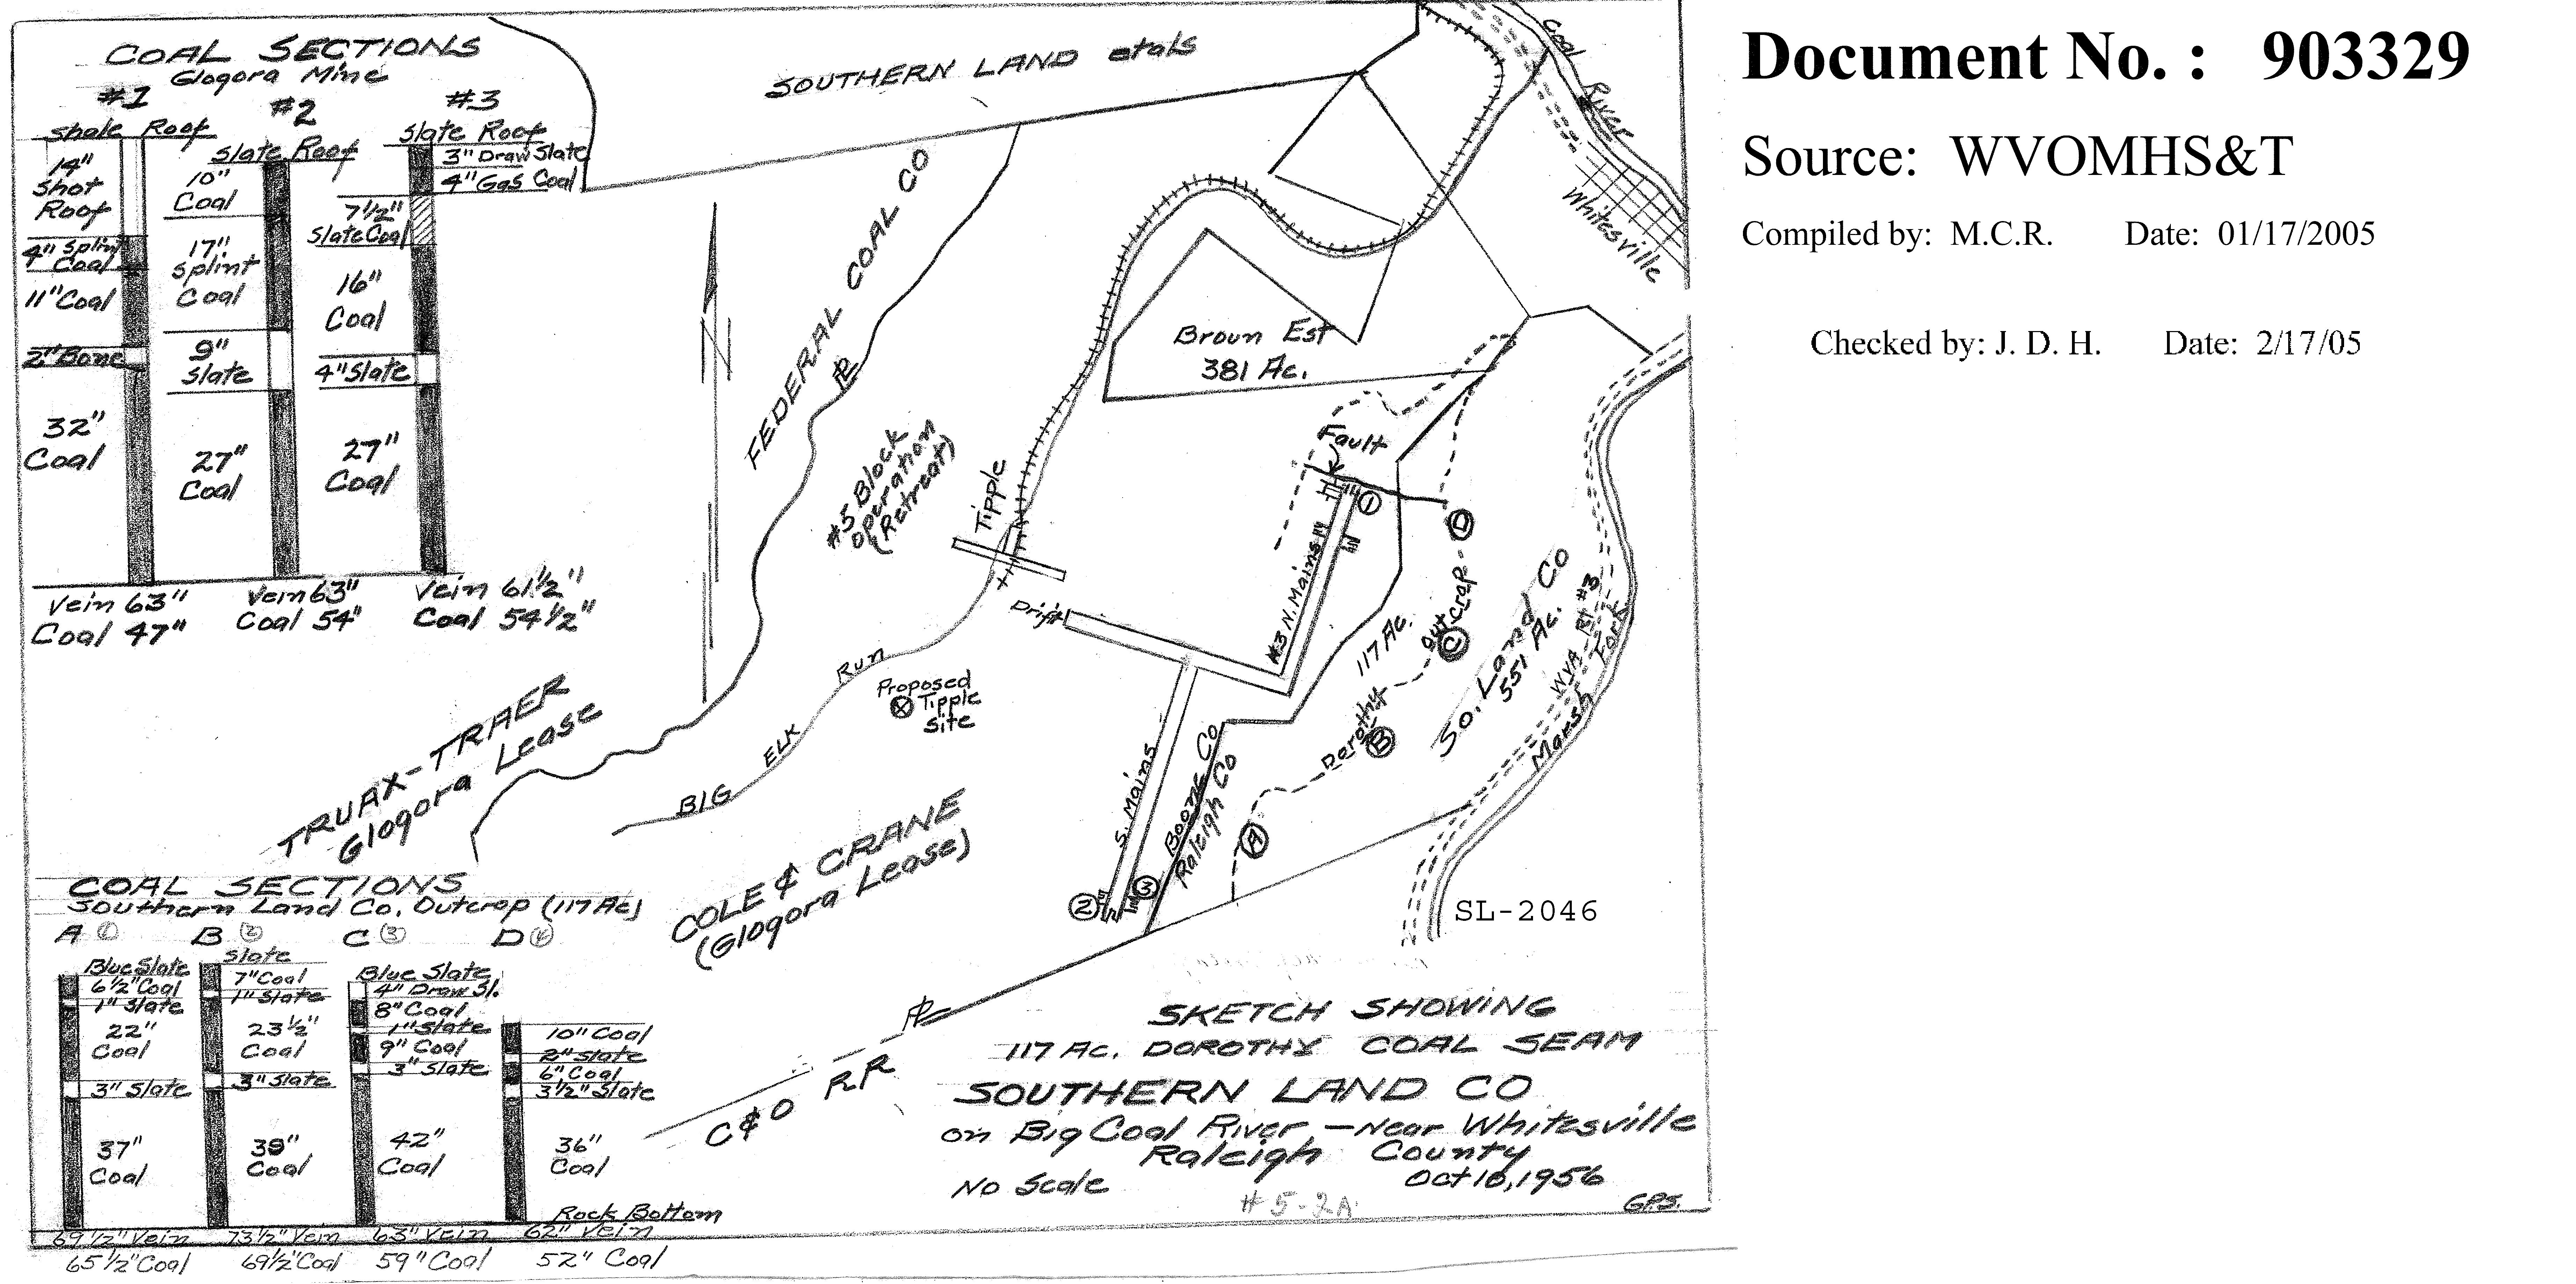 COAL SECTIONS
Glogora Mine
#1
Shale Roof
14"
Shot
Roof
4" Splint
Coal
11" Coal
2" Bone
32"
Coal
Vein 63"
Coal 47"
#2
Slate Roof
10"
Coal
17"
Splint
Coal
9"
Slate
27"
Coal
Vein 63"
Coal 54"
#3
Slate Roof
3" Draw Slate
4" Gas Coal
7 1/2"
Slate Coal
16"
Coal
4" Slate
27"
Coal
Vein 61 1/2"
Coal 54 1/2"
SOUTHERN LAND etals
Coal River
Whitesville
FEDERAL COAL CO
Broun Est
381 Ac.
#5 Block
operation
(Retreat)
Tipple
Fault
1
#3 N. Mains
Drift
D
Out Crop
C
117 Ac.
Dorothy
B
A
So. Land Co
551 Ac.
WVA Rt #3
Marsh Fork
Run
Proposed
Tipple
Site
ELK
BIG
TRUAX-TRAER
Glogora Lease
S. Mains
Boone Co
Raleigh Co
2
3
COLE & CRANE
(Glogora Lease)
SL-2046
COAL SECTIONS
Southern Land Co. Outcrop (117 Ac)
A 1
Blue Slate
6 1/2" Coal
1" Slate
22"
Coal
3" Slate
37"
Coal
69 1/2" Vein
65 1/2" Coal
B 2
Slate
7" Coal
1" Slate
23 1/2"
Coal
3" Slate
39"
Coal
73 1/2" Vein
69 1/2" Coal
C 3
Blue Slate
4" Draw Sl.
8" Coal
1" Slate
9" Coal
3" Slate
42"
Coal
63" Vein
59" Coal
D 4
10" Coal
2" Slate
6" Coal
3 1/2" Slate
36"
Coal
Rock Bottom
62" Vein
52" Coal
C & O RR
SKETCH SHOWING
117 Ac. DOROTHY COAL SEAM
SOUTHERN LAND CO
on Big Coal River - Near Whitesville
Raleigh County
No Scale
Oct 18, 1956
#5-2A
G.P.S.
Document No. : 903329
Source: WVOMHS&T
Compiled by: M.C.R. Date: 01/17/2005
Checked by: J. D. H. Date: 2/17/05